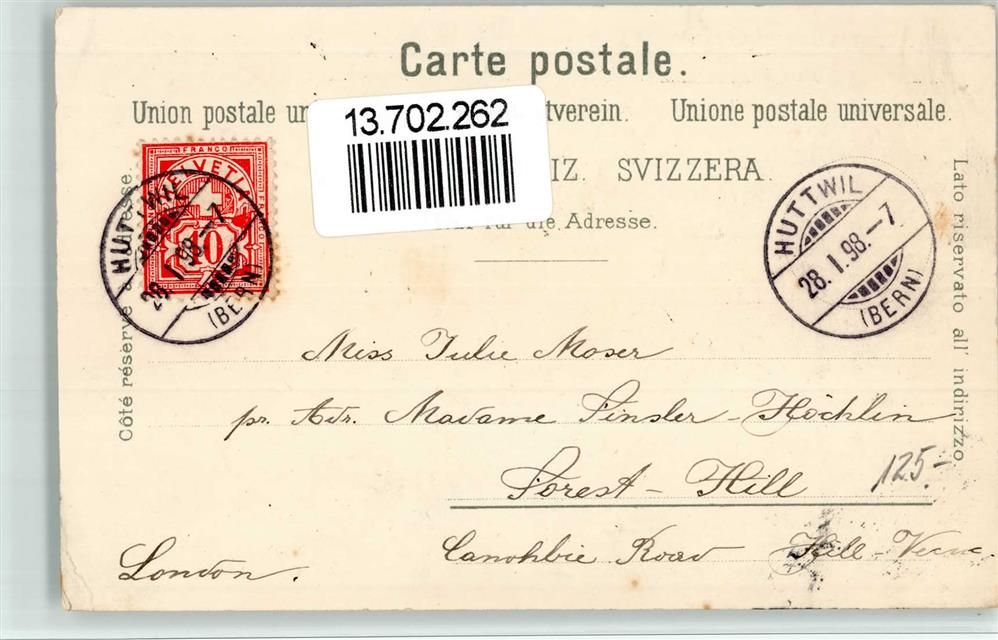 Carte postale.
Union postale un tverein. Unione postale universale.
13.702.262
IZ. SVIZZERA.
für die Adresse.
Côté réservé à adresse.
Lato riservato all' indirizzo.
FRANCO
HELVETIA
10
HUTTWIL
28.I.98.-7
(BERN)
HUTTWIL
28.I.98.-7
(BERN)
Miss Julie Moser
pr. Adr. Madame Finsler-Höchlin
Forest-Hill
125.-
Canohbie Road Hill-View.
London.